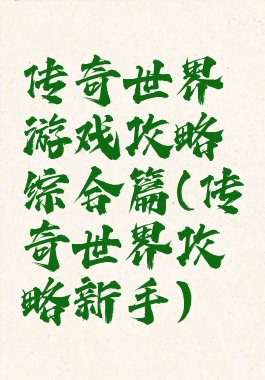 传奇世界
游戏攻略
综合篇(传
奇世界攻
略新手)